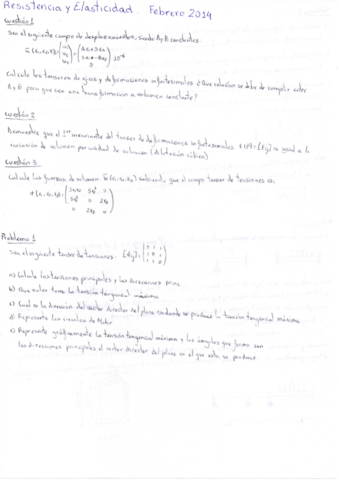 Resistencia y Elasticidad. Febrero 2014
Cuestión 1
Sea el siguiente campo de desplazamientos, siendo A y B constantes.
Calcule los tensores de giros y deformaciones infinitesimales ¿Que relación se debe de cumplir entre
A y B para que sea una transformación a volumen constante?
Cuestión 2
Demuestre que el 1er invariante del tensor de deformaciones infinitesimales es igual a la
variación de volumen por unidad de volumen (dilatación cúbica)
Cuestión 3
Calcule las fuerzas de volumen sabiendo que el campo tensor de tensiones es:
Problema 1
Sea el siguiente tensor de tensiones:
a) Calcule las tensiones principales y las direcciones prin.
b) Que valor toma la tensión tangencial máxima
c) Cual es la dirección del vector director del plano donde se produce la tensión tangencial máxima
d) Represente los circulos de Mohr
e) Represente gráficamente la tensión tangencial máxima y los ángulos que forma con
las direcciones principales el vector director del plano en el que esta se produce.